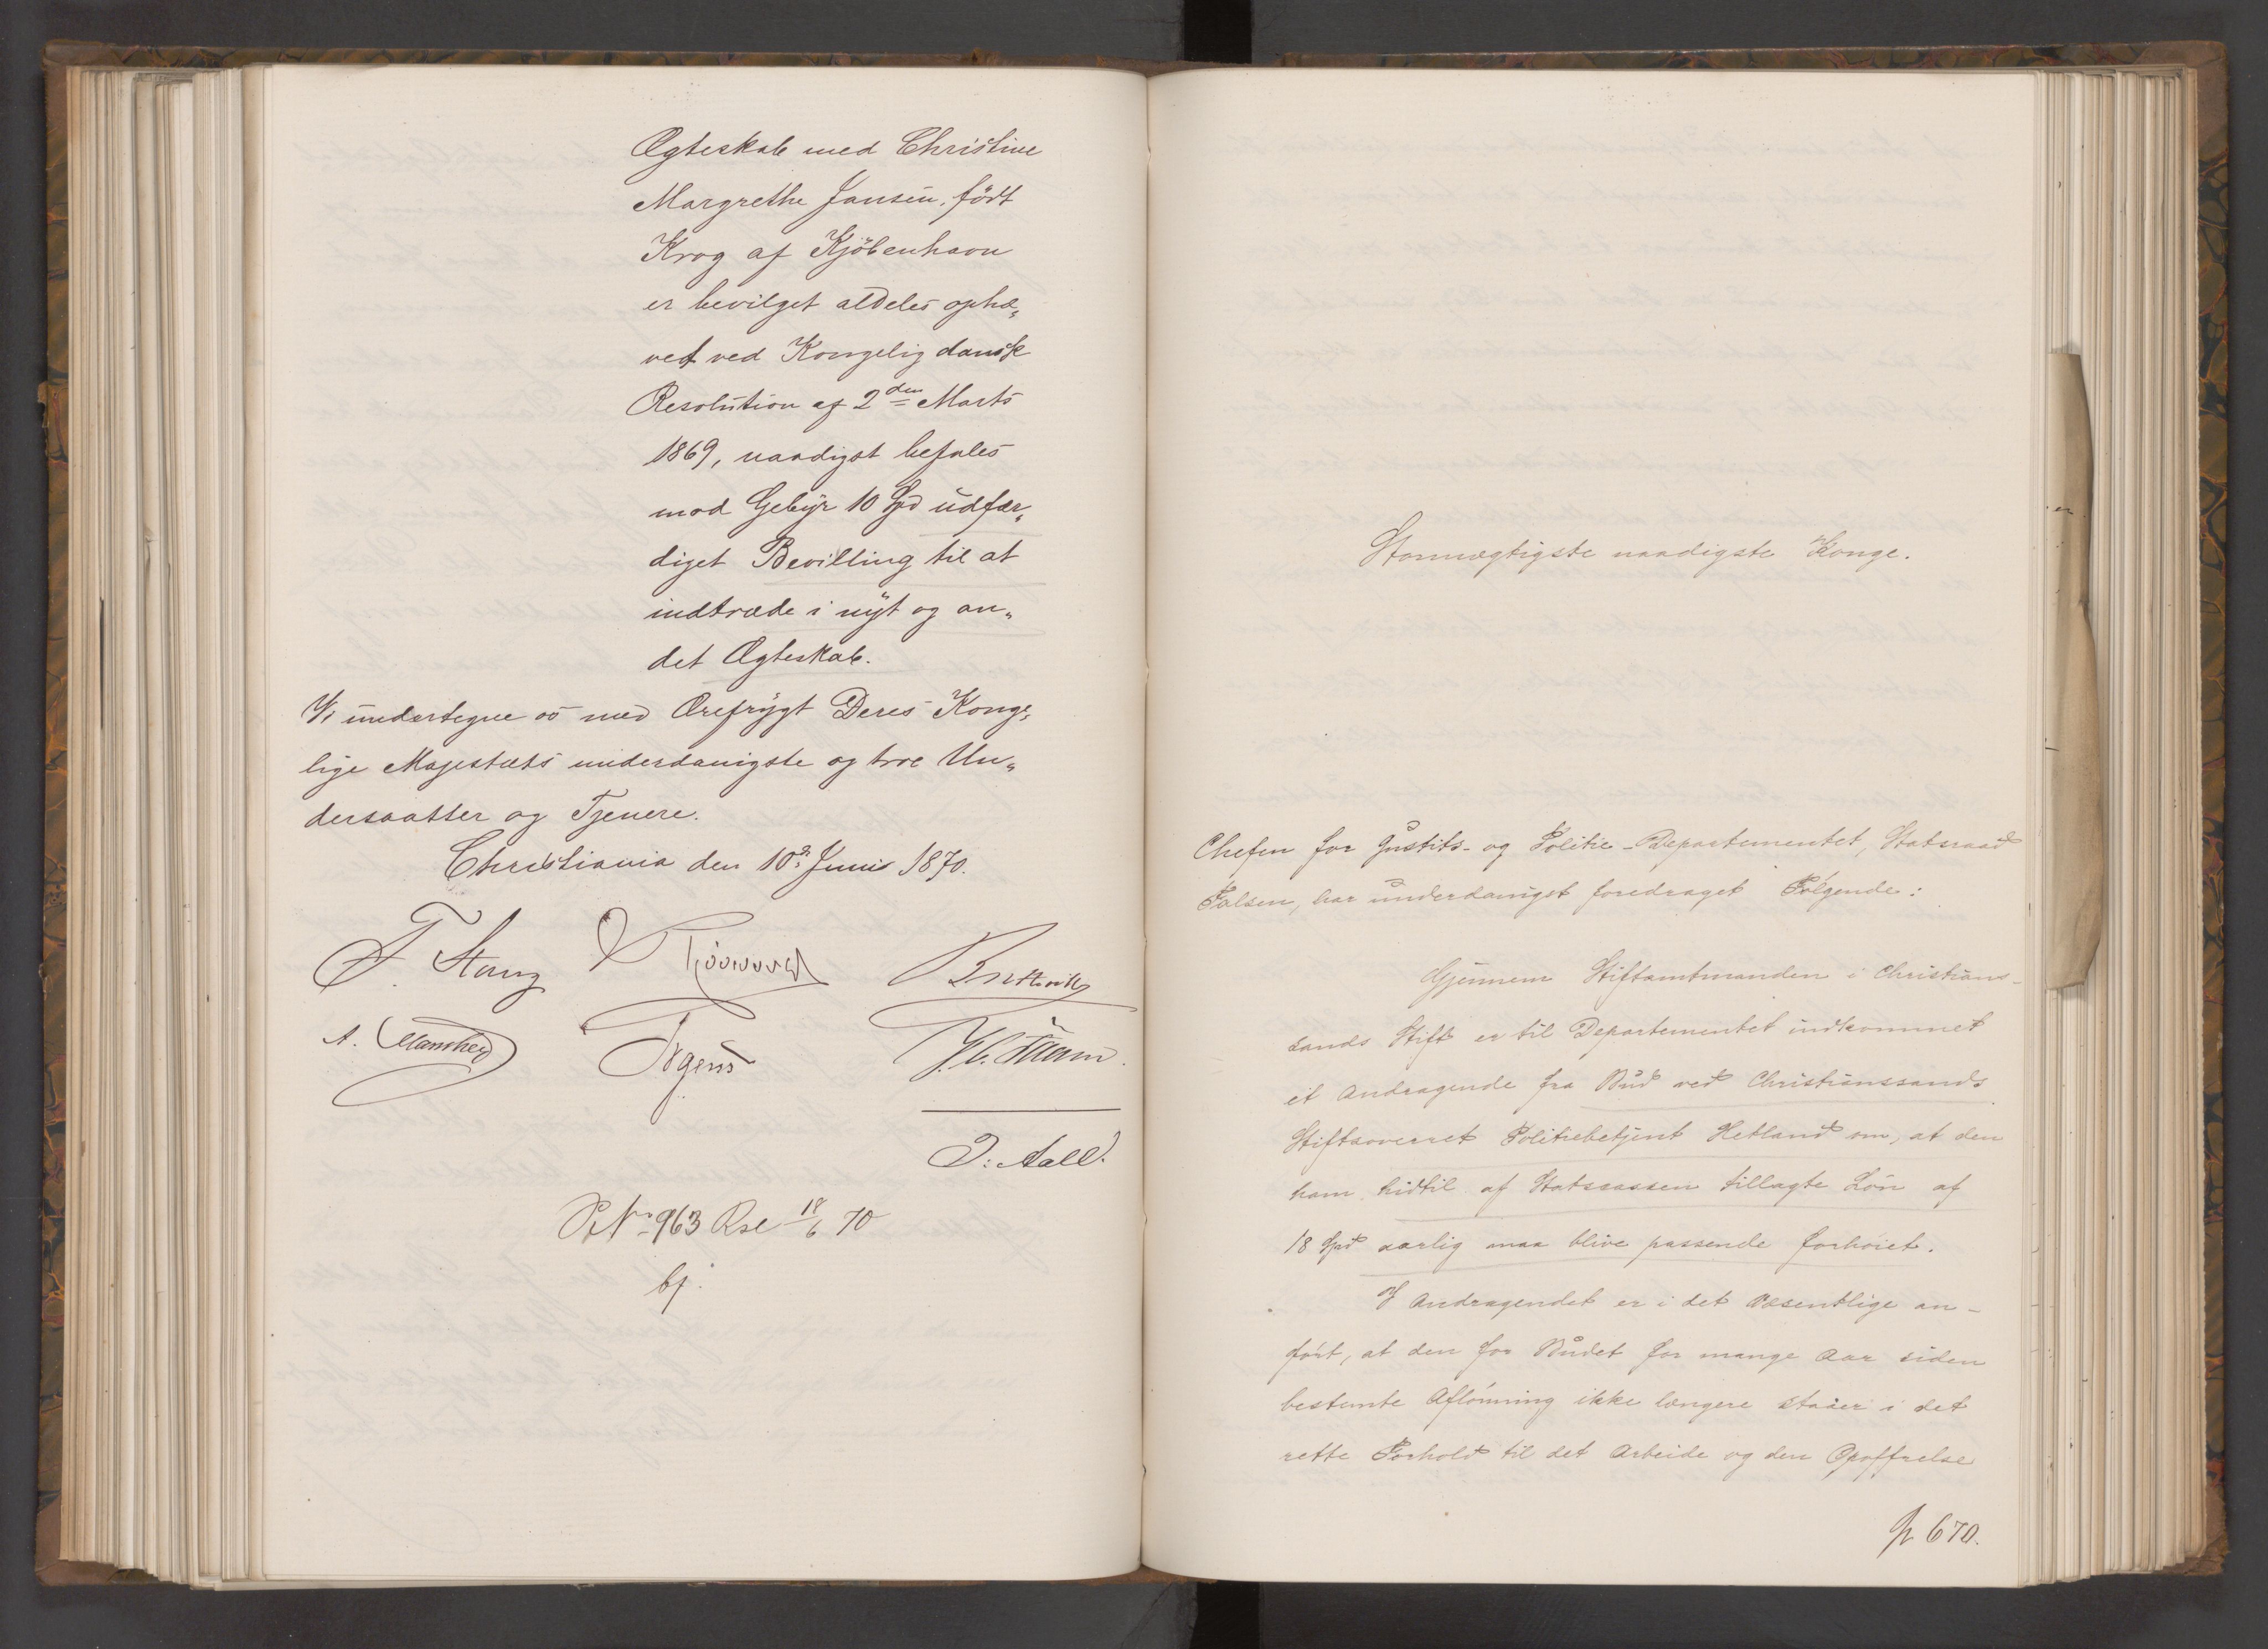 Ægteskab med Christine
Margrethe Jansen, født
Krog af Kjöbenhavn
er bevilget aldeles ophæ„
vet ved Kongelig dansk
Resolution af 2den Marts
1869, naadigst befales
mod Gebyr 10 Spd udfær„
diget Bevilling til at
indtræde i nyt og an„
det Ægteskab.
Vi undertegne os med Ærefrygt Deres Konge„
lige Majestæts underdanigste og troe Un„
dersaatter og Tjenere.
Christiania den 10de Juni 1870.
F. Stang
A. Manthey Irgens
O: Aall.
No 963 Rse 18/6 70
bf.
Stormægtigste naadigste Konge.
Chefen for Justits- og Politie-Departementet, Statsraad
Falsen, har underdanigst foredraget Følgende:
Gjennem Stiftamtmanden i Christians-
sands Stift er til Departementet indkommet
et Andragende fra Bud ved Christianssands
Stiftsoverret Politiebetjent Hetland om, at den
ham hidtil af Statscassen tillagte Løn af
18 Spd aarlig maa blive passende forhøiet.
I Andragendet er i det Væsentlige an-
ført, at den for Budet for mange Aar siden
bestemte Aflønning ikke længere staaer i det
rette Forhold til det Arbeide og den Opoffrelse
p 670.